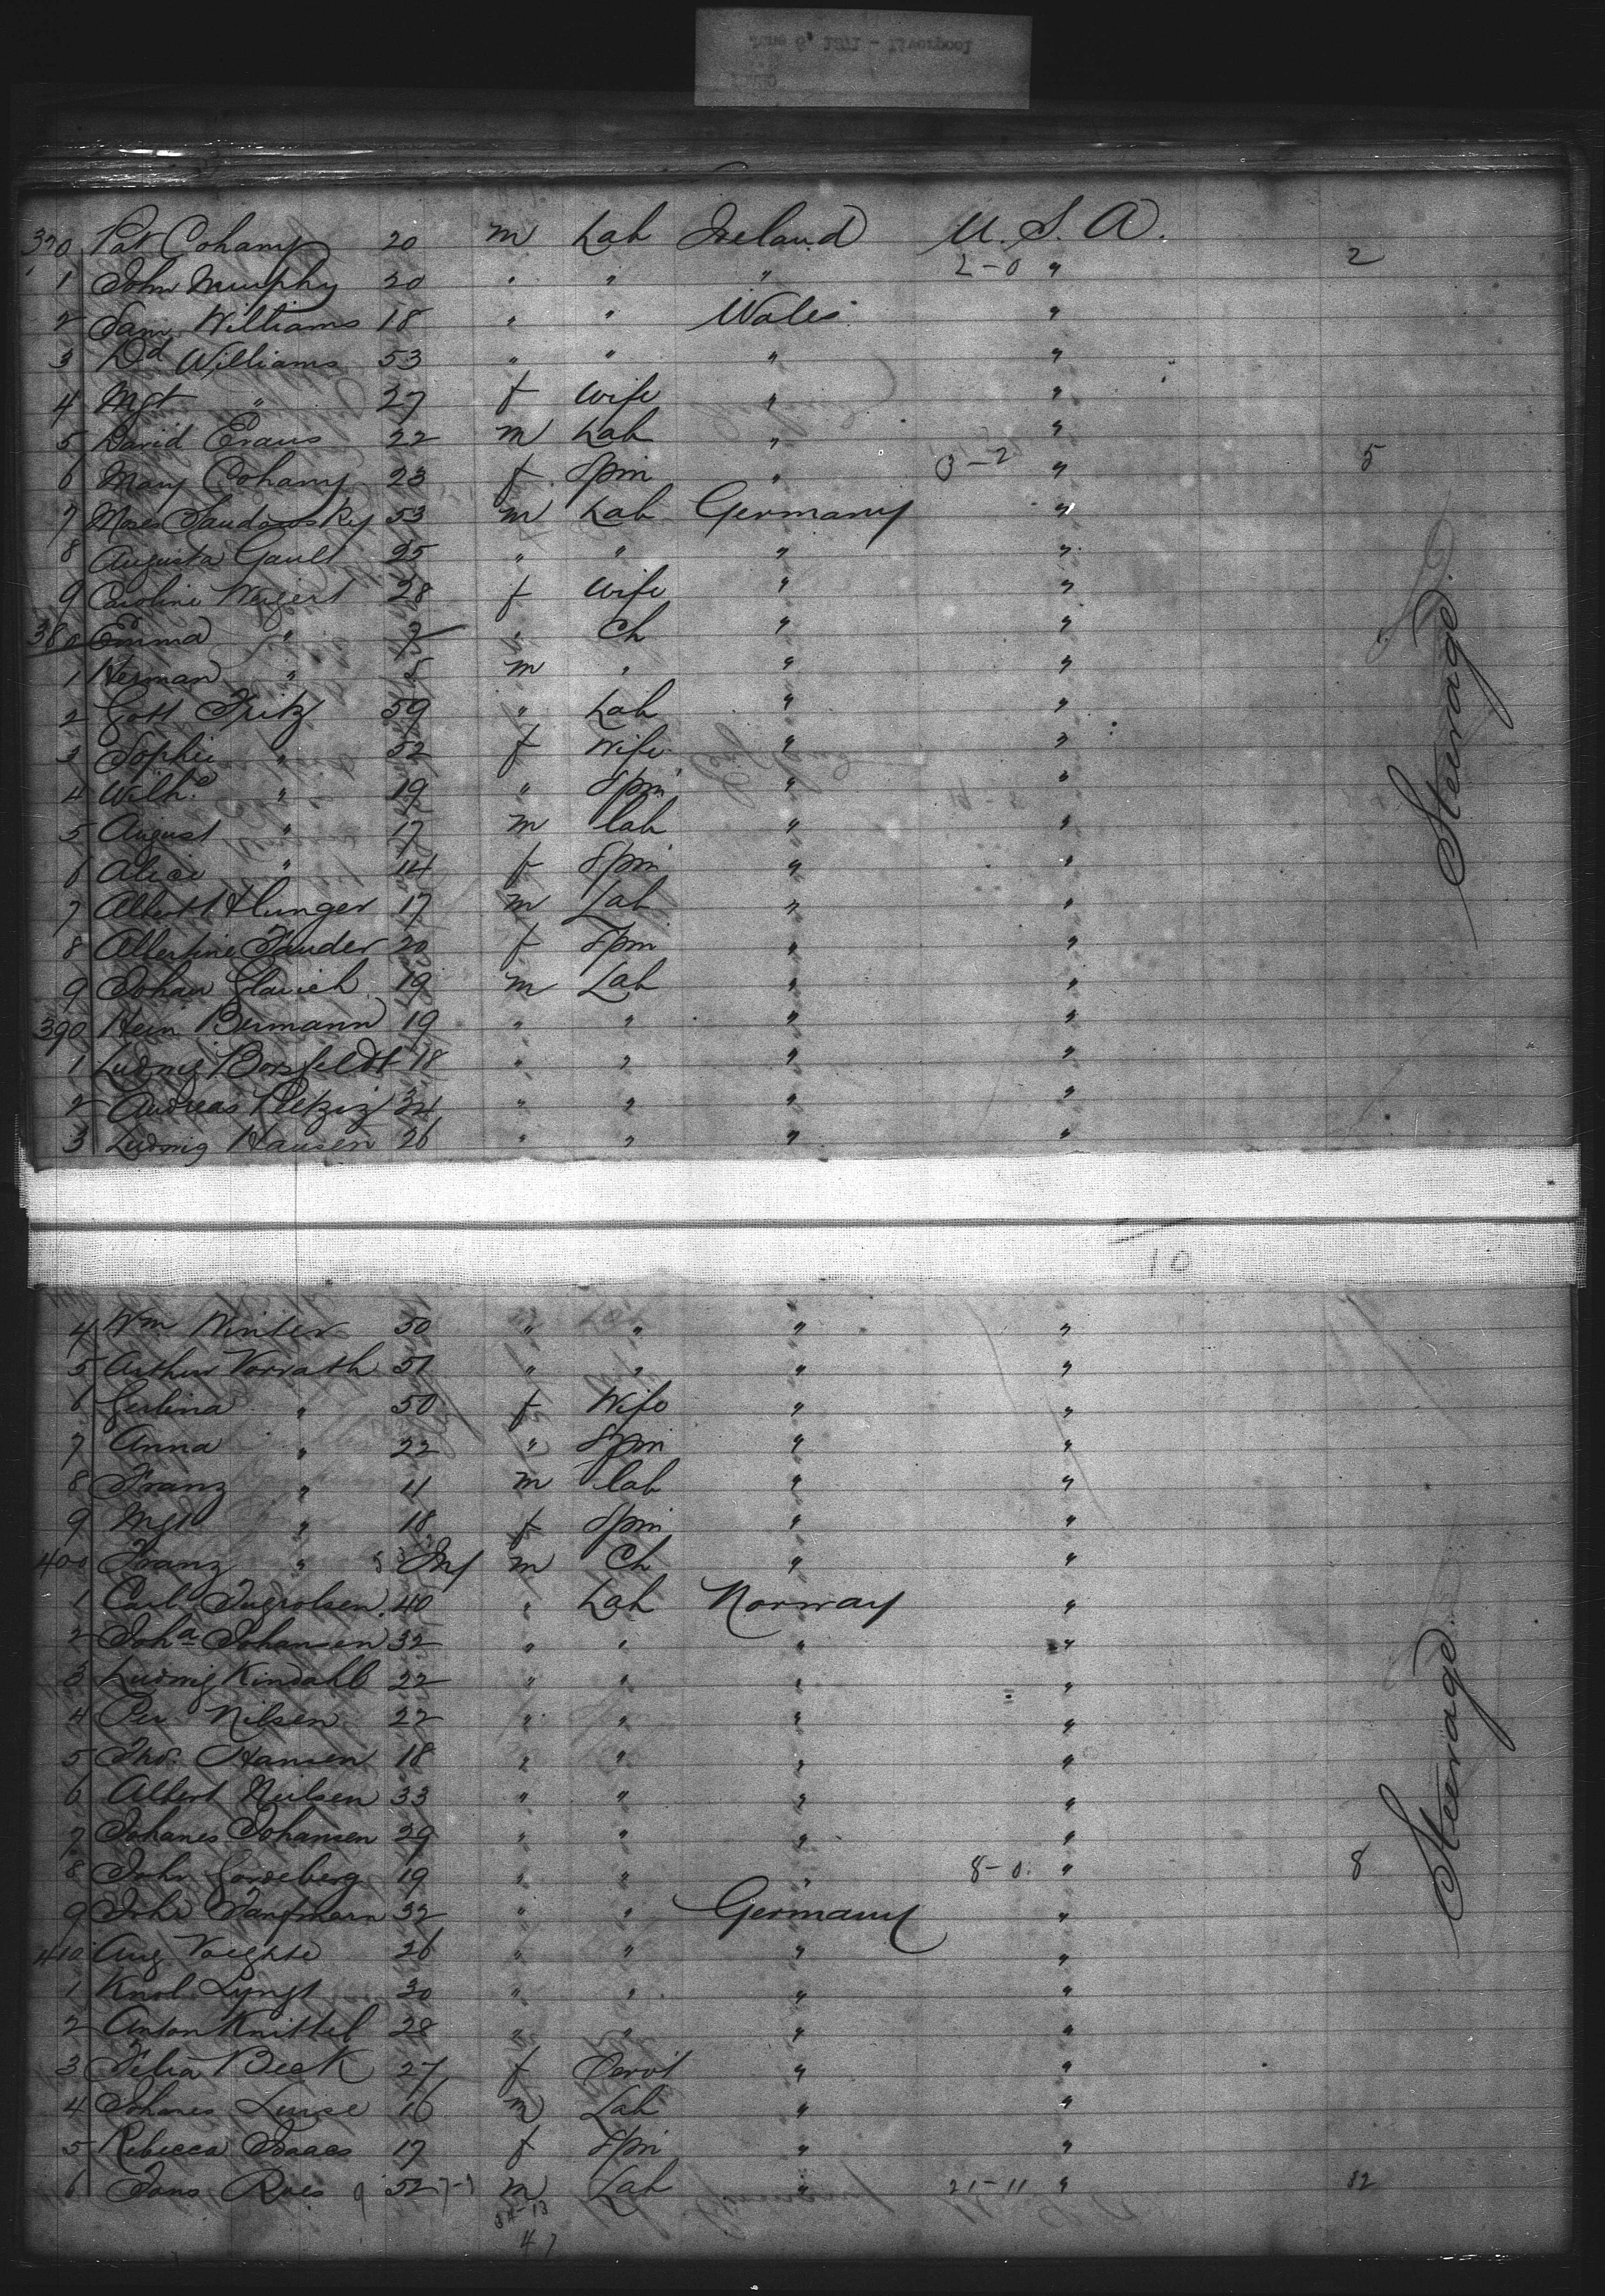 June 6, 1871 - Liverpool
370 Pat Cohamy 20 m Lab Ireland U. S. A.
1 John Murphy 20 " " " 2-0 " 2
2 Sam Williams 18 " " Wales "
3 Dd Williams 53 " " " "
4 Mgt " 27 f Wife " "
5 David Evans 22 m Lab " "
6 Mary Cohamy 23 f Spin " 3-2 " 5
7 Moses Saudowsky 53 m Lab Germany "
8 Augusta Gault 25 " " " "
9 Caroline Weigert 28 f Wife " "
380 Emma " 7 " Ch " "
1 Herman " 5 m " " "
2 Gott Fritz 59 " Lab " "
3 Sophie " 52 f Wife " "
4 Wilhe " 19 " Spin " "
5 August " 17 m Lab " "
6 Alice " 14 f Spin " "
7 Albert Hlunger 17 m Lab " "
8 Albertine Fauder 20 f Spin " "
9 Johan Glavich 19 m Lab " "
390 Hein Bermann 19 " " " "
1 Ludwig Borsfeldt 18 " " " "
2 Andreas 34 " " " "
3 Ludwig Hausen 26 " " " "
Steerage
10
4 Wm Winter 50 " " " "
5 Arthur Vorrath 51 " " " "
6 Gerlina " 50 f Wife " "
7 Anna " 22 " Spin " "
8 Franz " 11 m Lab " "
9 Mgt " 18 f Spin " "
400 Franz " Inf m Ch " "
1 Carl 40 " Lab Norway "
2 Joha Johansen 32 " " " "
3 Ludwig Kindahl 22 " " " "
4 Per Nilsen 22 " " " "
5 Thos. Hansen 18 " " " "
6 Albert Neilsen 33 " " " "
7 Johanes Johansen 29 " " " "
8 John Gordeberg 19 " " " 8-0 " 8
9 Johe 32 " " Germany "
410 Aug Voeghte 26 " " " "
1 Knol Lyngt 30 " " " "
2 Anton Knittel 28 " " " "
3 Felia Beck 27 f Servt " "
4 Johanes Luise 16 m Lab " "
5 Rebecca Isaacs 17 f Spin " "
6 Jans Roes 52 m Lab " 21-11 " 32
34-13
47
Steerage